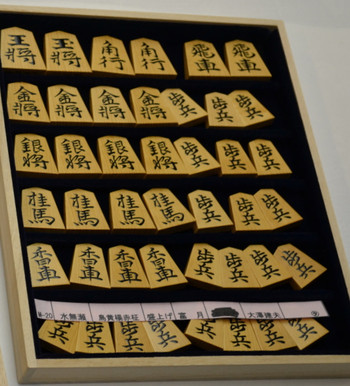 王將 玉將 角行 角行 飛車 飛車
金將 金將 金將 金將 歩兵 歩兵 歩兵
銀将 銀将 銀将 銀将 歩兵 歩兵 歩兵
桂馬 桂馬 桂馬 桂馬 歩兵 歩兵 歩兵
香車 香車 香車 香車 歩兵 歩兵 歩兵 歩兵
水無瀬 島黄楊赤柾 盛上げ 富月
歩兵 歩兵 歩兵 歩兵 歩兵 歩兵 歩兵